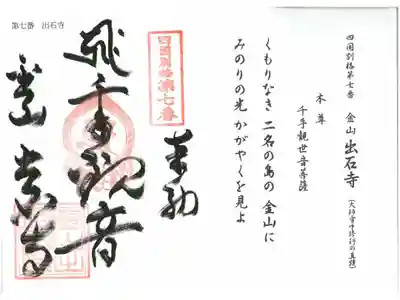 四国別格第七番 金山 出石寺
本尊
千手観世音菩薩
くもりなき 二名の島の 金山に
みのりの光 かがやくを見よ
四国別格第七番
奉納
千手観音
出石寺
第七番 出石寺